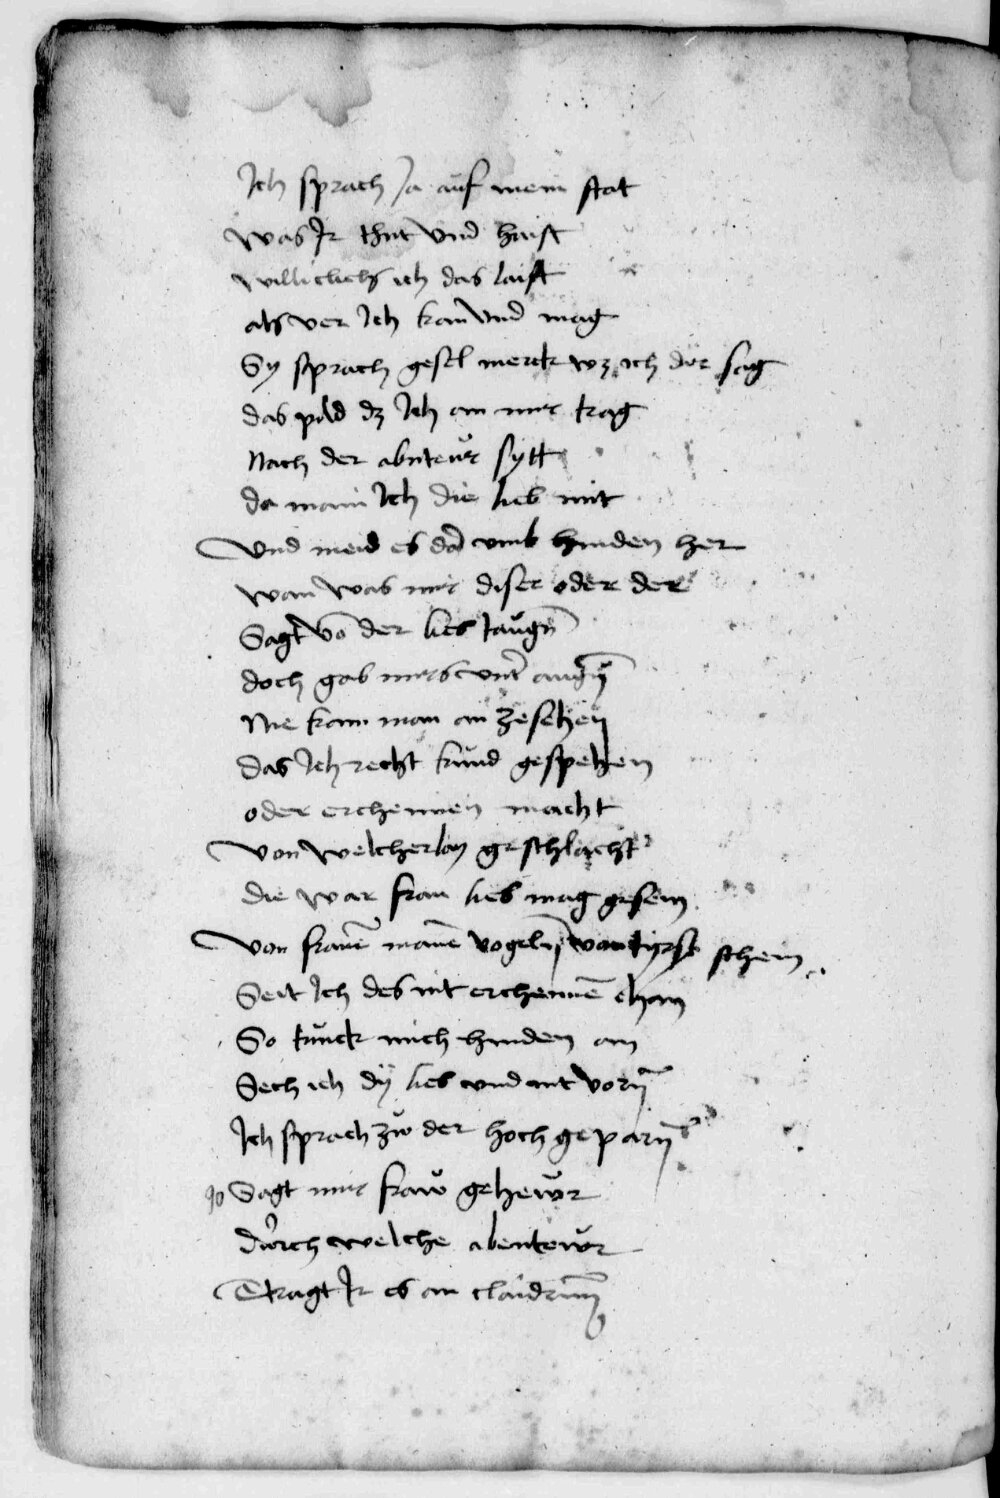 Ich sprach Ja auf mein stat
was Ir thut vnd haist
willichlichs ich das laist
als ver Ich kan vnd mag
Sy sprach gesel merck wz ich dir sag
das pild dz Ich an mir trag
Nach der abnteẃr sytt
da main Ich die lieb mit
Vnd meid es vmb hinden her
wan was mir diser oder der
Sagt võ der lieb taugñ
doch gab mirs vnt̃ augñ
Nie kain man an zesehen
das Ich recht kund gespehen
oder erchennen macht
Von welcherlay geschlächt
die war fraw lieb mag gesein
Von frawẽ manẽ vogeln schein
Seit Ich des nit erchennẽ chan
So kuck mich hinden an
Sech ich dÿ lieb vnd nit vorñ
Ich sprach zw der hoch geparñ
Sagt mir fraw gehewr
durch welche abentewr
Tragt Ir es an claidrnn